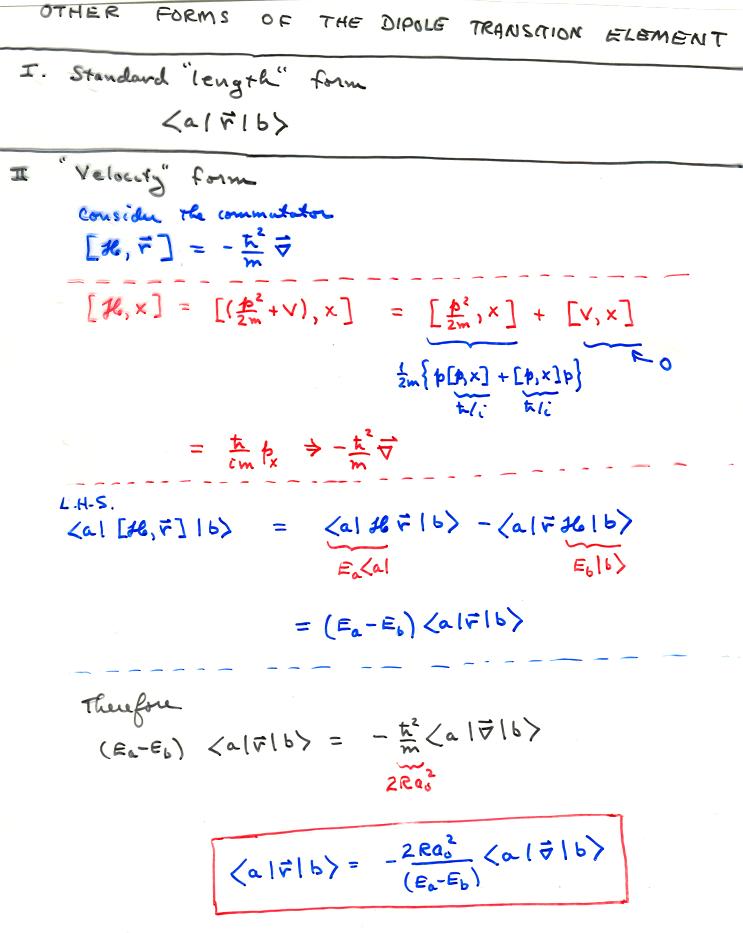 OTHER FORMS OF THE DIPOLE TRANSITION ELEMENT
I. Standard "length" form
<a|r⃗|b>
II "Velocity" form
Consider the commutator
[ℋ, r⃗] = - ħ²/m ∇⃗
[ℋ, x] = [(p²/2m + V), x] = [p²/2m, x] + [V, x]
← 0
1/2m {p[p,x] + [p,x]p}
ħ/i ħ/i
= ħ/im pₓ → - ħ²/m ∇⃗
L.H.S.
<a| [ℋ, r⃗] |b> = <a|ℋ r⃗|b> - <a|r⃗ ℋ|b>
Eₐ<a| E_b|b>
= (Eₐ - E_b) <a|r⃗|b>
Therefore
(Eₐ-E_b) <a|r⃗|b> = - ħ²/m <a|∇⃗|b>
2Ra₀²
<a|r⃗|b> = - 2Ra₀²/(Eₐ-E_b) <a|∇⃗|b>